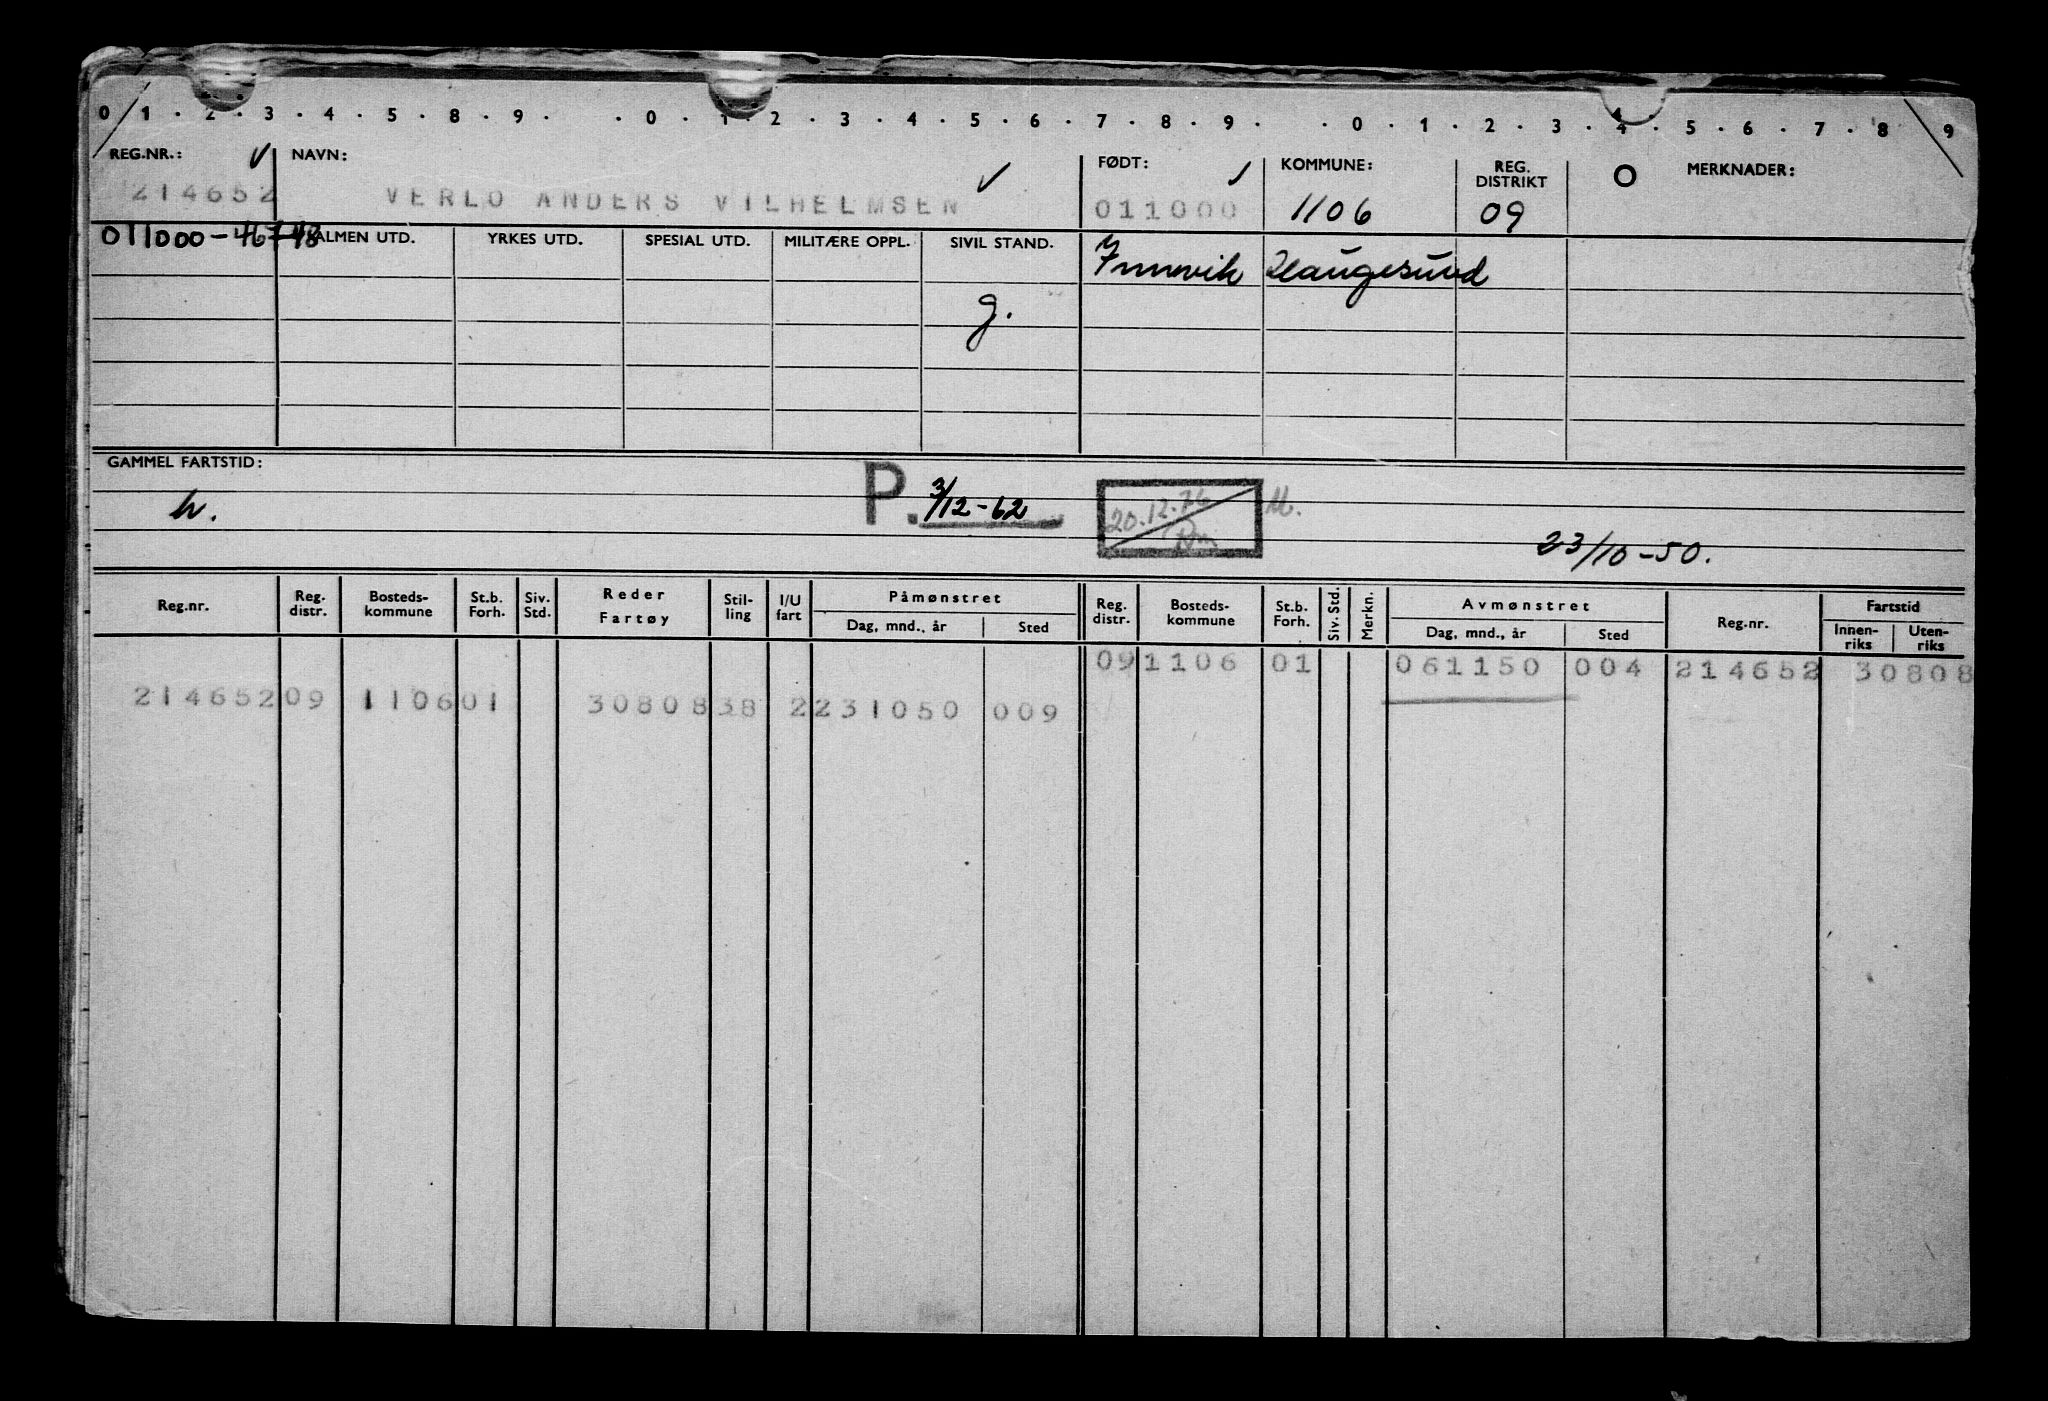 0 1 . 2 . 3 . 4 . 5 . 8 . 9 . . 0 . 1 . 2 . 3 . 4 . 5 . 6 . 7 . 8 . 9 . . 0 . 1 . 2 . 3 . 4 . 5 . 6 . 7 . 8 . 9
REG.NR.: ✓ NAVN: ✓ FØDT: ✓ KOMMUNE: REG. DISTRIKT O MERKNADER:
214652 VERLO ANDERS VILHELMSEN 011000 1106 09
011000-46748 ALMEN UTD. YRKES UTD. SPESIAL UTD. MILITÆRE OPPL. SIVIL STAND. Innvik Haugesund
g.
GAMMEL FARTSTID:
h. P. 3/12-62 20.12.76 M.
23/10-50.
Reg.nr. Reg. distr. Bosteds-kommune St.b. Forh. Siv. Std. Reder Fartøy Stil-ling I/U fart Påmønstret Dag, mnd., år Sted Reg. distr. Bosteds-kommune St.b. Forh. Siv. Std. Merkn. Avmønstret Dag, mnd., år Sted Reg.nr. Fartstid Innen-riks Uten-riks
09 1106 01 061150 004 214652 30808
214652 09 1106 01 30808 38 2 231050 009